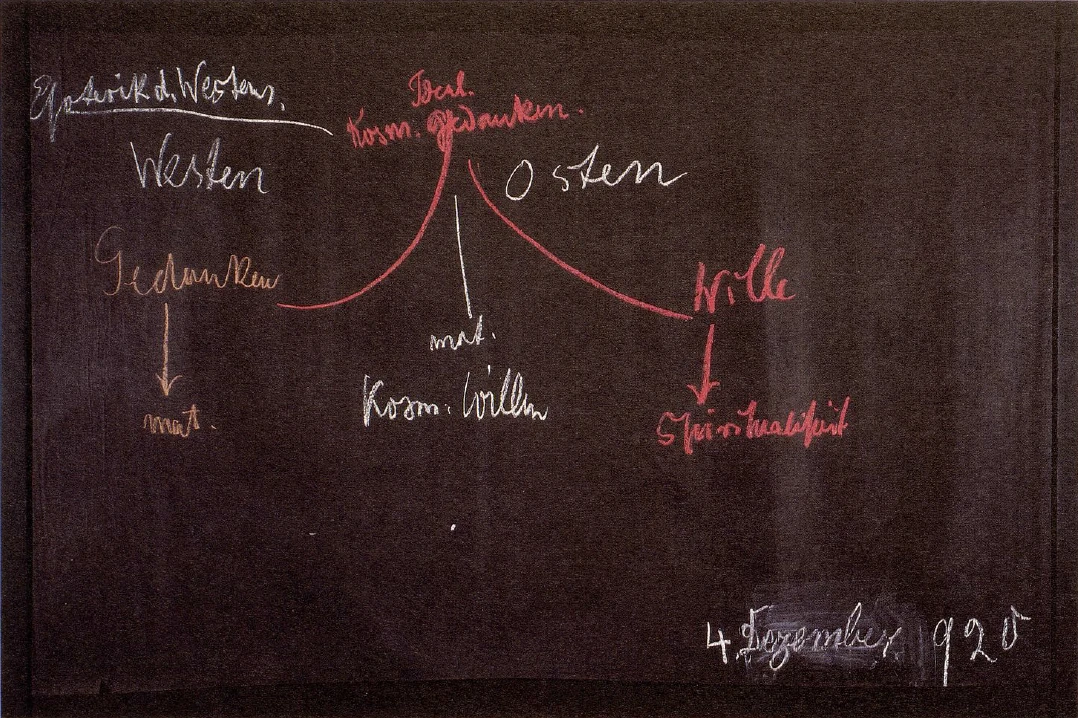 Esoterik d. Westens.
Ideal.
Kosm. Gedanken.
Westen
Osten
Gedanken
Wille
mat.
Kosm. Willen
mat.
Spiritualität
4. Dezember 1920